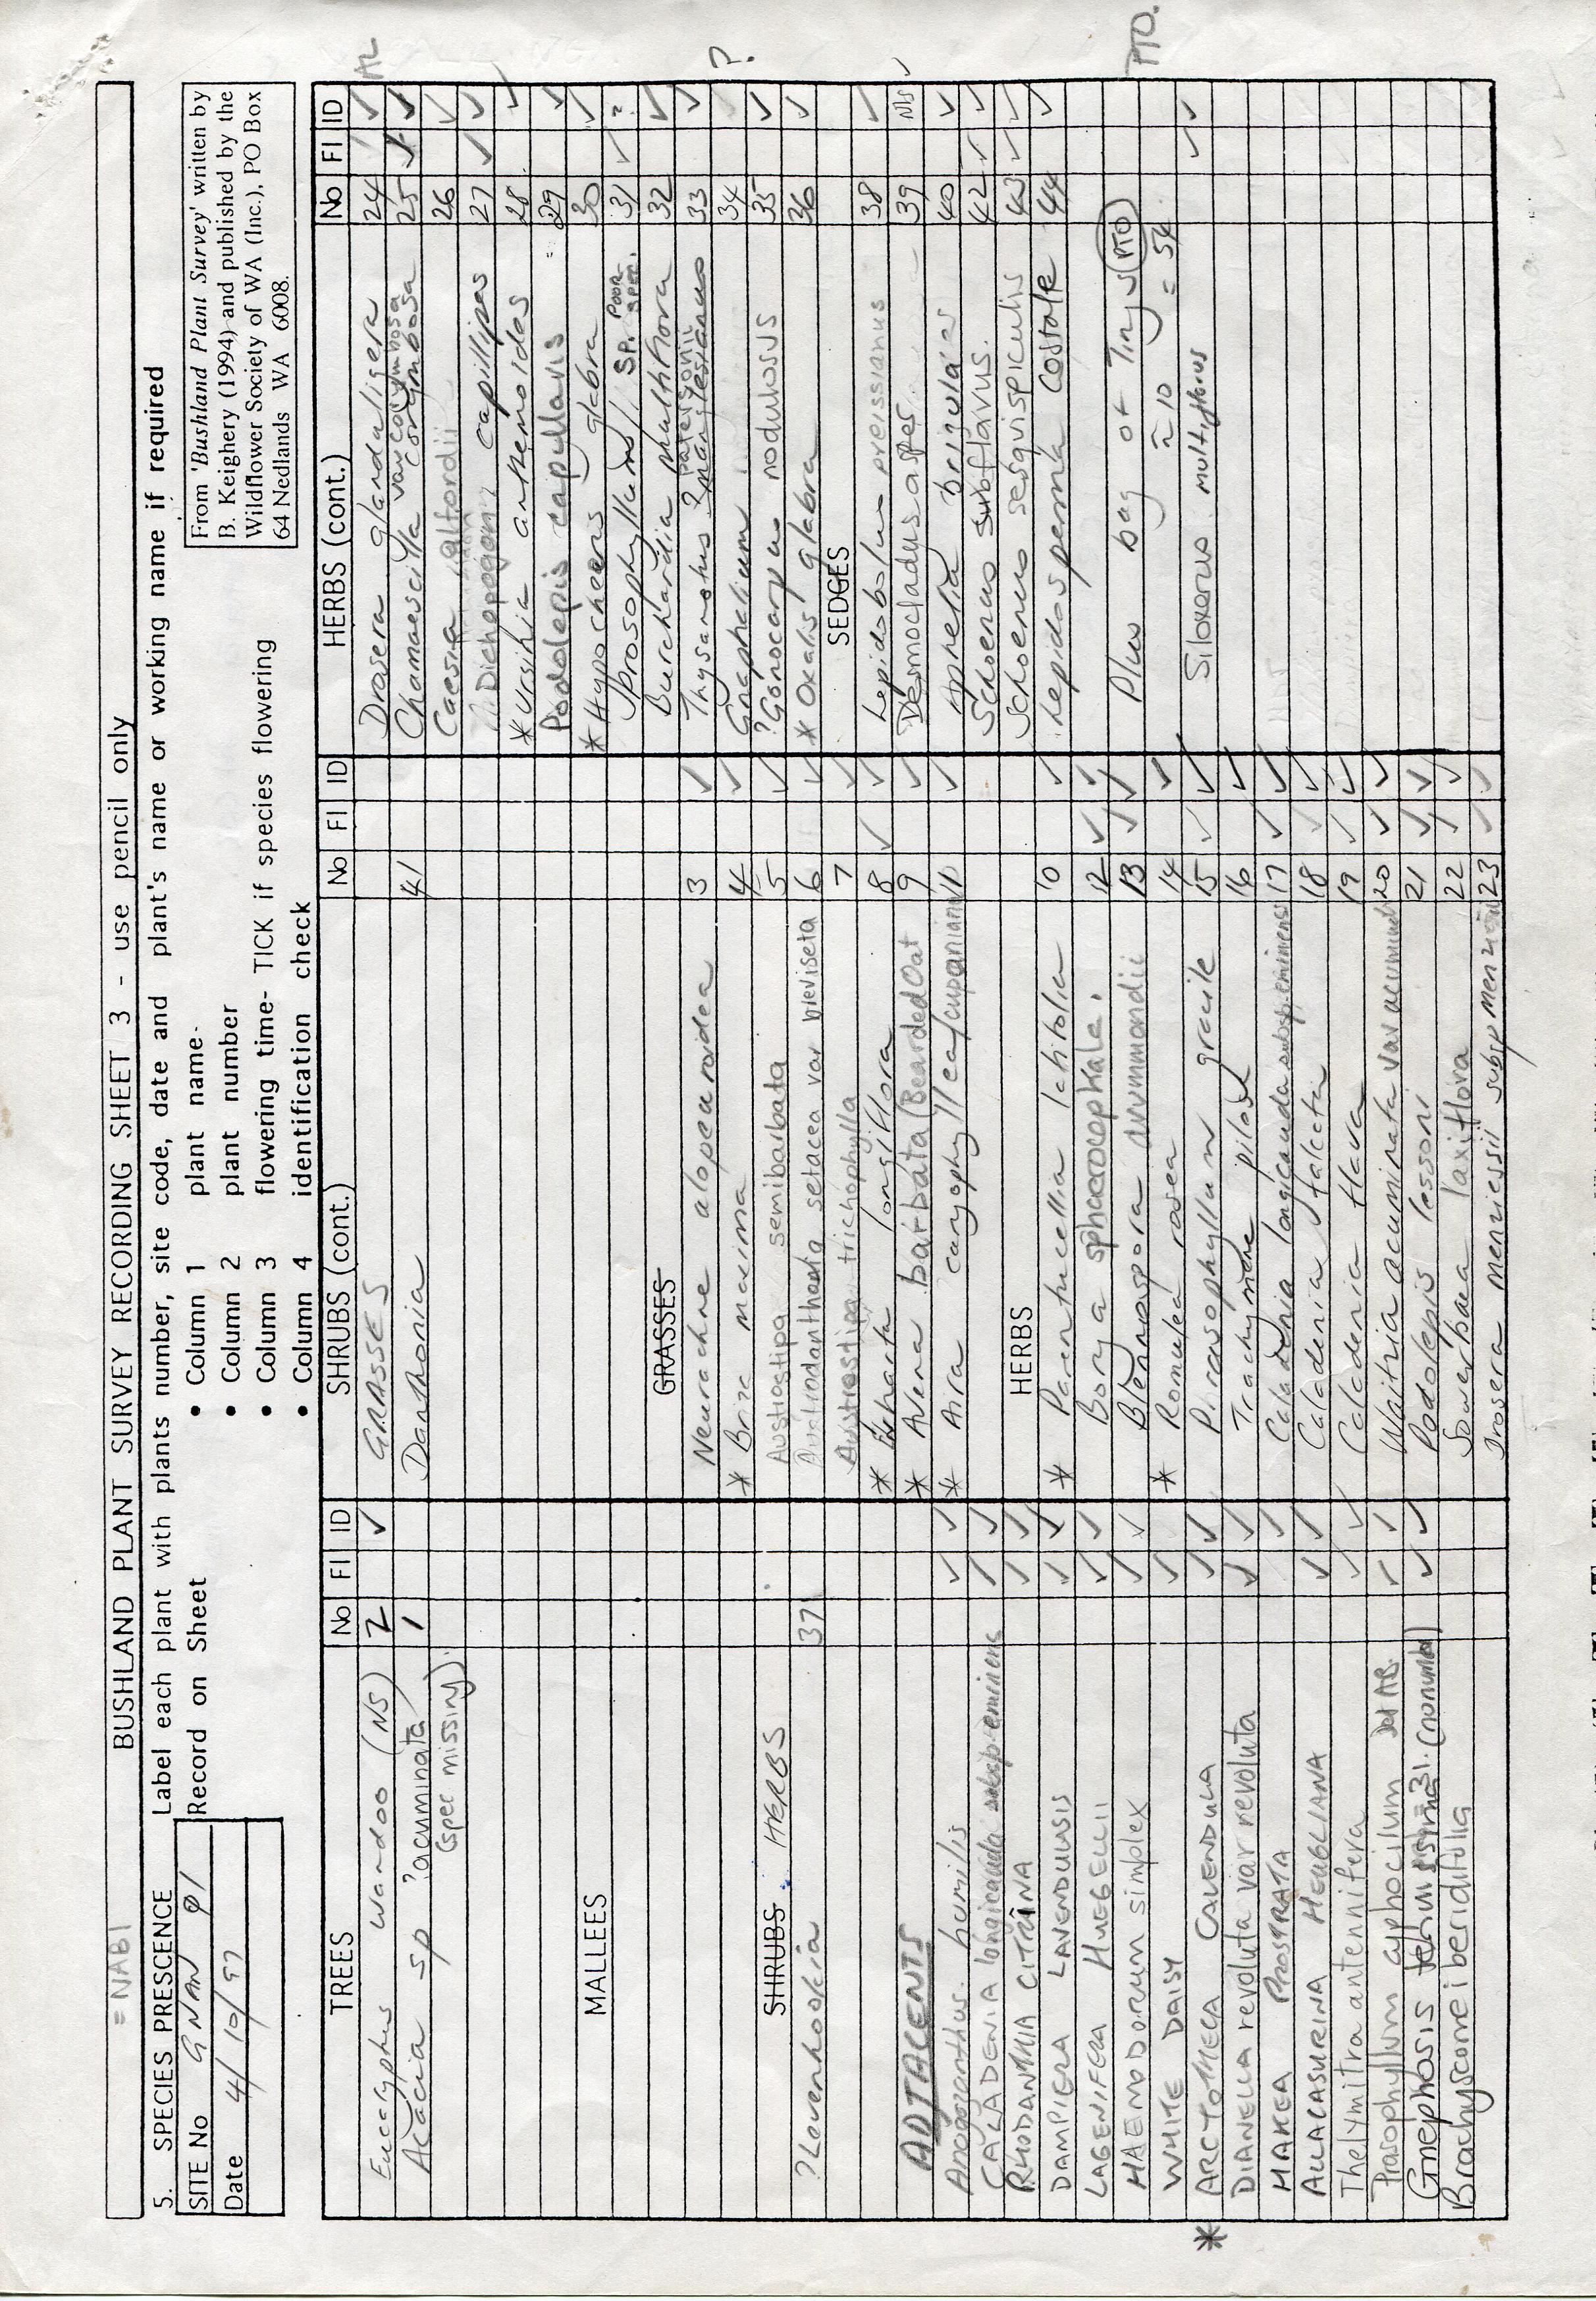 = NAB1
BUSHLAND PLANT SURVEY RECORDING SHEET 3 - use pencil only
5. SPECIES PRESCENCE
SITE No GNAN 01
Date 4/10/97
Label each plant with plants number, site code, date and plant's name or working name if required
Record on Sheet
• Column 1 plant name
• Column 2 plant number
• Column 3 flowering time- TICK if species flowering
• Column 4 identification check
From 'Bushland Plant Survey' written by
B. Keighery (1994) and published by the
Wildflower Society of WA (Inc.), PO Box
64 Nedlands WA 6008.
TREES No Fl ID
Eucalyptus wandoo (NS) 2 ✓
Acacia sp ?acuminata 1
(spec missing).
MALLEES
SHRUBS HERBS
?Levenhookia 37
ADJACENTS
Anogozanthus humilis ✓ ✓
CALADENIA longicauda subsp eminens ✓ ✓
RHODANTHIA CITRINA ✓ ✓
DAMPIERA LAVENDULSIS ✓ ✓
LAGENIFERA HUEGELII ✓ ✓
HAEMODORUM simplex ✓ ✓
WHITE DAISY ✓
* ARCTOTHECA CALENDULA ✓ ✓
DIANELLA revoluta var revoluta ✓ ✓
HAKEA PROSTRATA ✓
ALLACASURINA HEUGLIANA ✓ ✓
Thelymitra antennifera ✓ ✓
Prasophyllum cyphocilum Det AB. ✓ ✓
Gnephosis tenuissima 31. (nonumber) ✓ ✓
Brachyscome iberidifolia
SHRUBS (cont.) No Fl ID
GRASSES
Danthonia 41
GRASSES
Neurachne alopecuroidea 3 ✓
* Briza maxima 4 ✓
Austrostipa semibarbata 5 ✓
Austrodanthonia setacea var breviseta 6 ✓
Austrostipa trichophylla 7 ✓
* Erharta longiflora 8 ✓ ✓
* Avena barbata (Bearded Oat 9 ✓
* Aira caryophyllea/cupaniana 11 ✓
HERBS
* Parentucellia latifolia 10 ✓
Borya sphaerocephala. 12 ✓ ✓
Blennospora drummondii 13 ✓ ✓
* Romulea rosea 14 ✓
Prasophyllum gracile 15 ✓ ✓
Trachymene pilosa 16 ✓
Caladenia longicauda subsp. eminens 17 ✓ ✓
Caladenia falcata 18 ✓ ✓
Caladenia flava 19 ✓ ✓
Waitzia acuminata var acuminata 20 ✓ ✓
Podolepis lessoni 21 ✓ ✓
Sowerbaea laxiflora 22 ✓ ✓
Drosera menziessii subsp menziesii 23 ✓ ✓
HERBS (cont.) No Fl ID
Drosera glanduligera 24 ✓ AL
Chamaescilla var corymbosa corymbosa 25 ✓ ✓
Caesia 26 ✓
Dichopogon capillipes 27 ✓ ✓
* Ursinia anthemoides 28 ✓
Podolepis capillaris 29 ✓
* Hypochaeris glabra 30 ✓
Prosophyllum SP. POOR SPEC. 31 ✓ ?
Burchardia multiflora 32 ✓
Thysanotus ?manglesianus patersonii 33 ✓
Gnaphalium 34 ?
?Gonocarpus nodulosus 35 ✓
* Oxalis glabra 36 ✓
SEDGES
Lepidobolus preissianus 38 ✓
Desmocladus asper 39 NS ✓
Aphelia brizula 40 ✓
Schoenus subflavus. 42 ✓ ✓
Schoenus sesquispiculis 43 ✓ ✓
Lepidosperma costale 44 ✓
Plus bag of Tinys (PTO) PTO.
≈ 10 = 54
Siloxerus multiflorus ✓ ✓